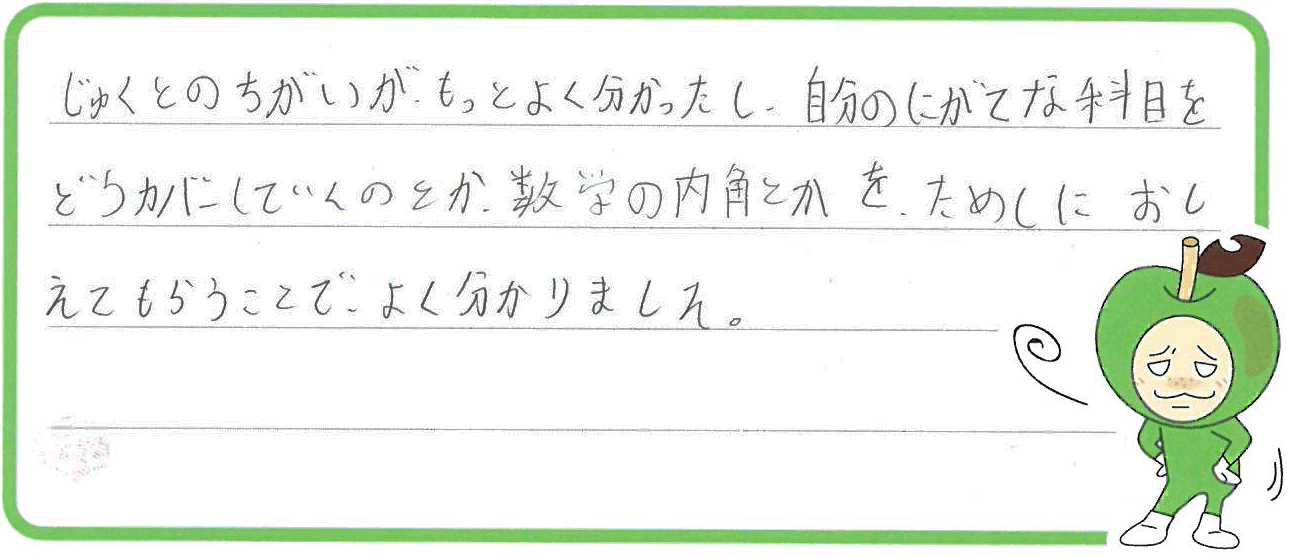 じゅくとのちがいが、もっとよく分かったし、自分のにがてな科目を
どうカバーしていくのとか、数学の内角とかを、ためしにおし
えてもらうことで、よく分かりました。